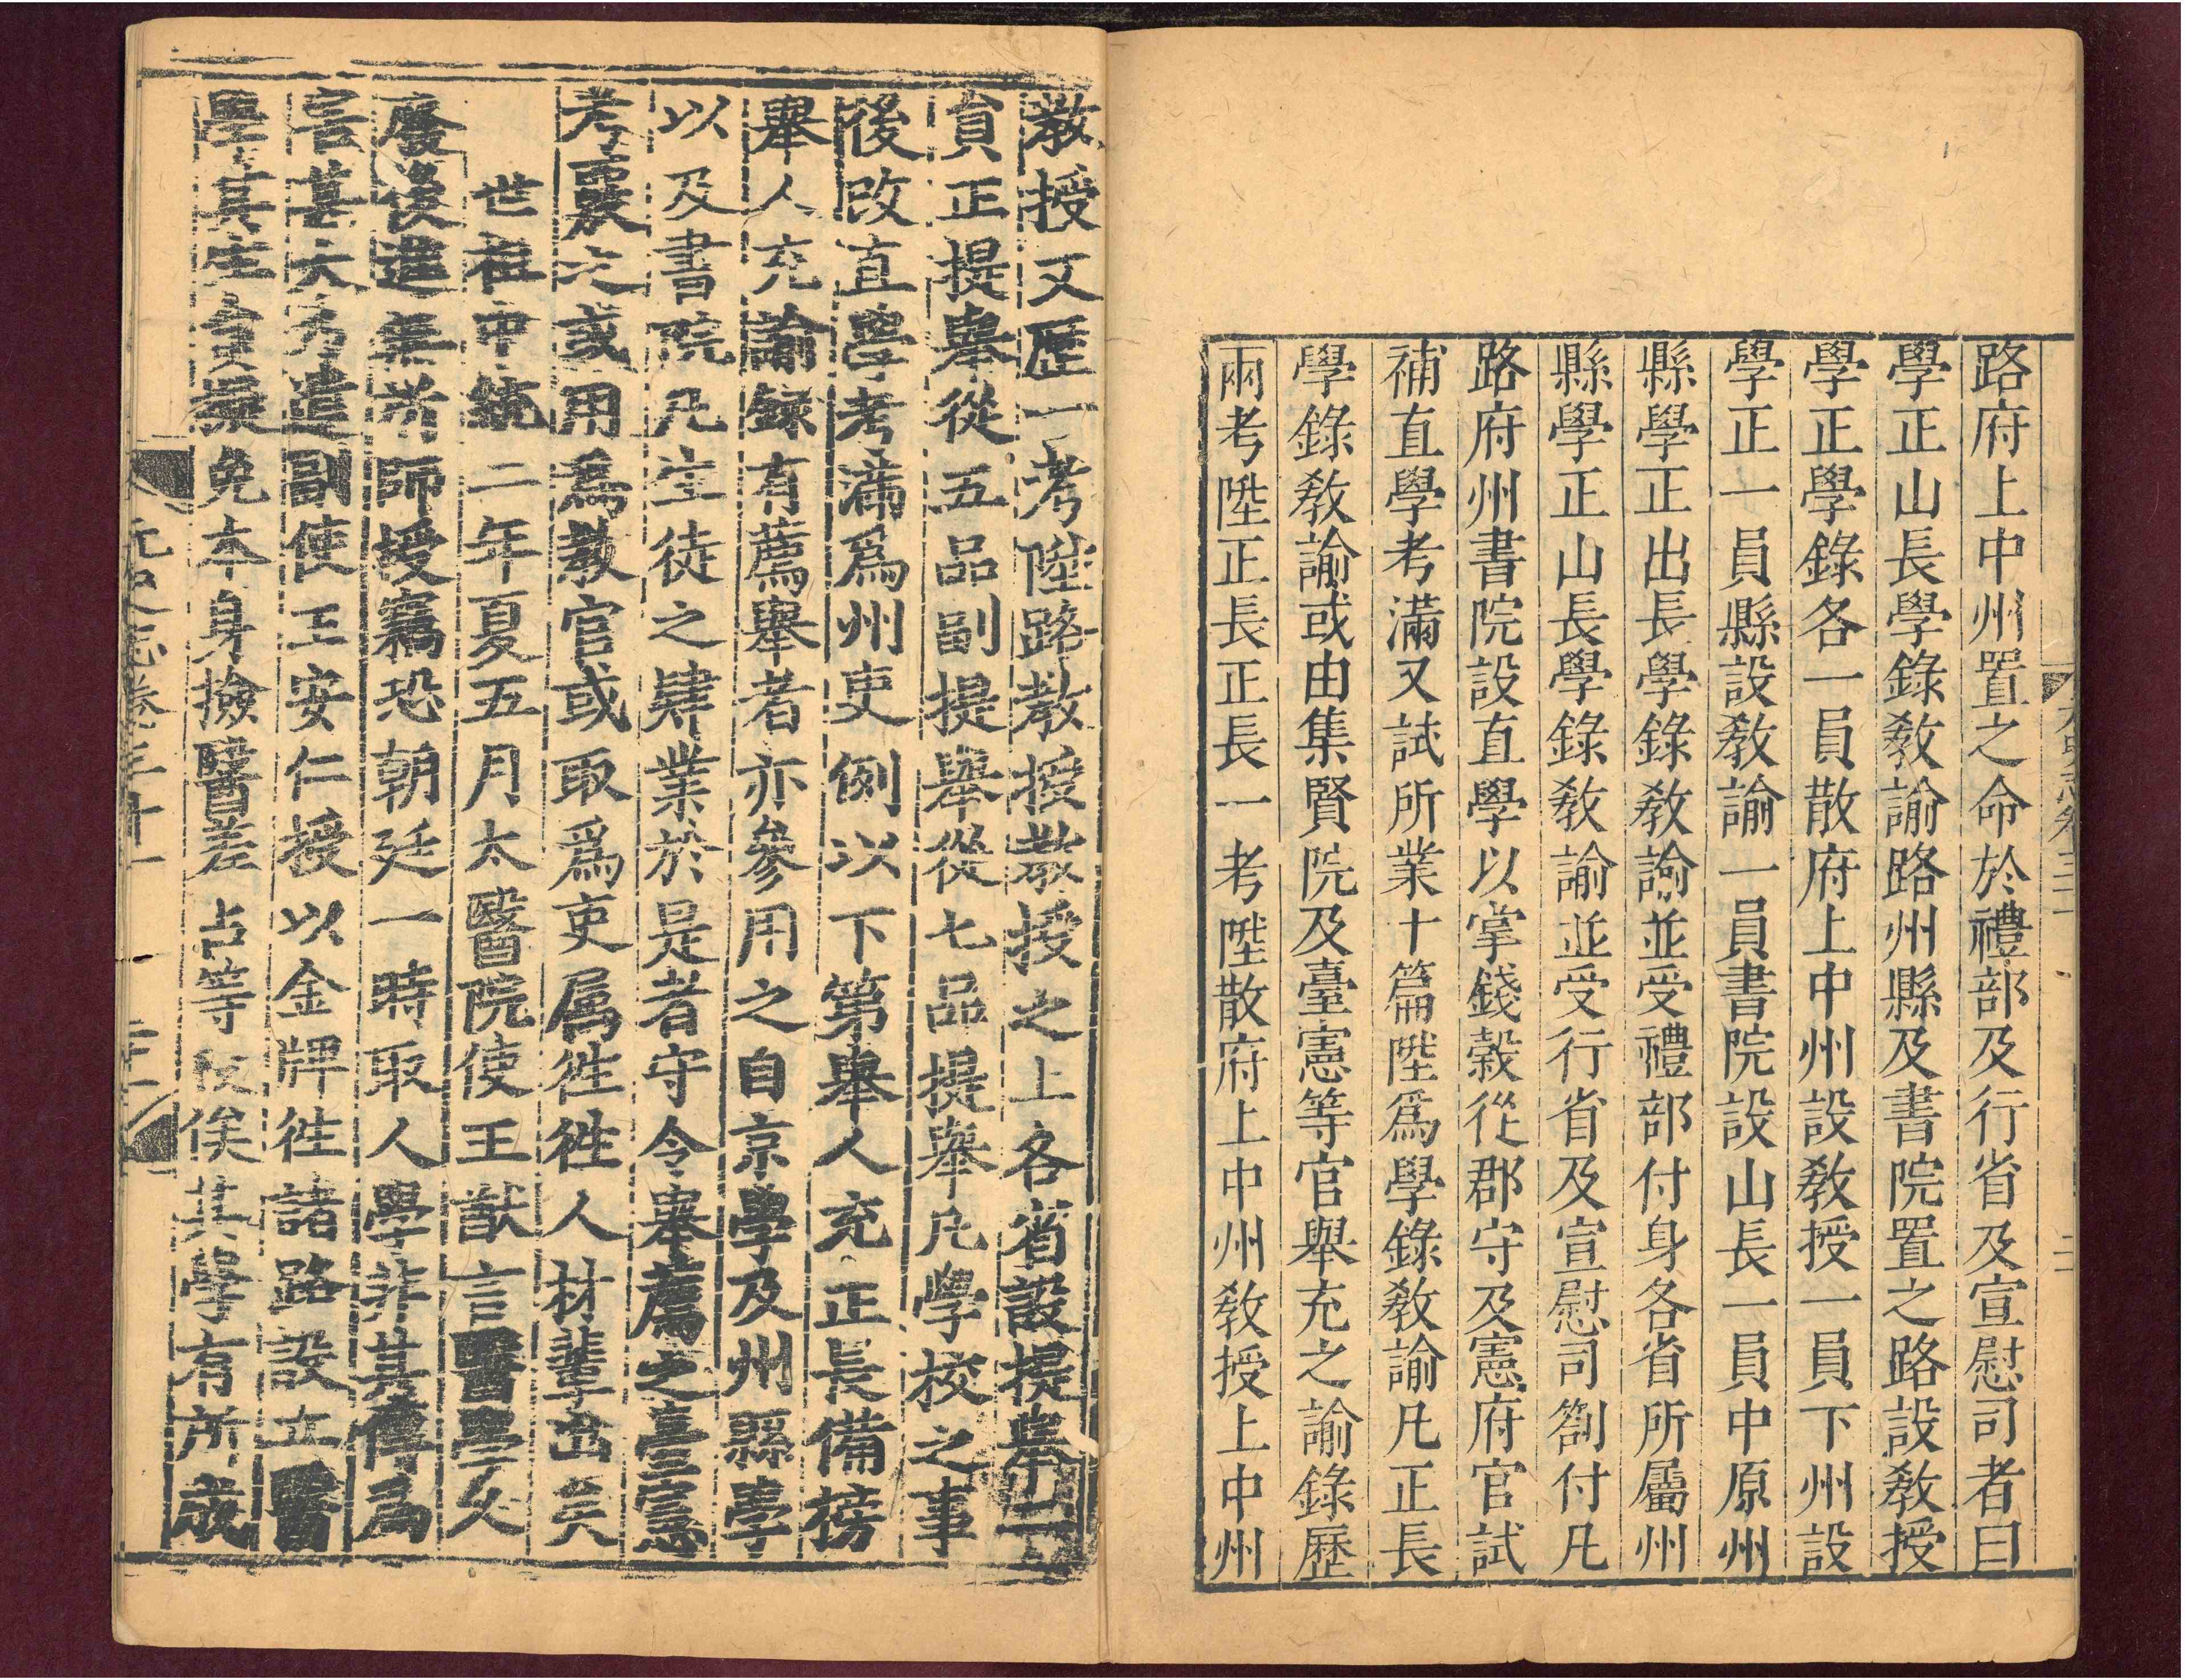 路府上中州置之命於禮部及行省及宣慰司者曰
學正山長學錄敎諭路州縣及書院置之路設敎授
學正學錄各一員散府上中州設敎授一員下州設
學正一員縣設敎諭一員書院設山長一員中原州
縣學正出長學錄敎諭並受禮部付身各省所屬州
縣學正山長學錄敎諭並受行省及宣慰司劄付凡
路府州書院設直學以掌錢穀從郡守及憲府官試
補直學考滿又試所業十篇陞爲學錄敎諭凡正長
學錄敎諭或由集賢院及臺憲等官舉充之諭錄歷
兩考陞正長正長一考陞散府上中州敎授上中州
教授又歷一考陞路教授教授之上各省設提舉二
員正提舉從五品副提舉從七品提舉凡學校之事
後改直學考滿爲州吏例以下第舉人充正長備榜
舉人充諭錄有薦舉者亦參用之自京學及州縣學
以及書院凡生徒之肄業於是者守令舉薦之臺憲
考覈之或用爲教官或取爲吏屬徃徃人材輩出矣
世祖中統二年夏五月太醫院使王猷言醫學久
廢後進無所師授竊恐朝廷一時取人學非其傳爲
害甚大乃遣副使王安仁授以金牌徃諸路設立醫
學其生員擬免本身撿醫差占等役俟其學有所成
元史志卷三十一 二十一